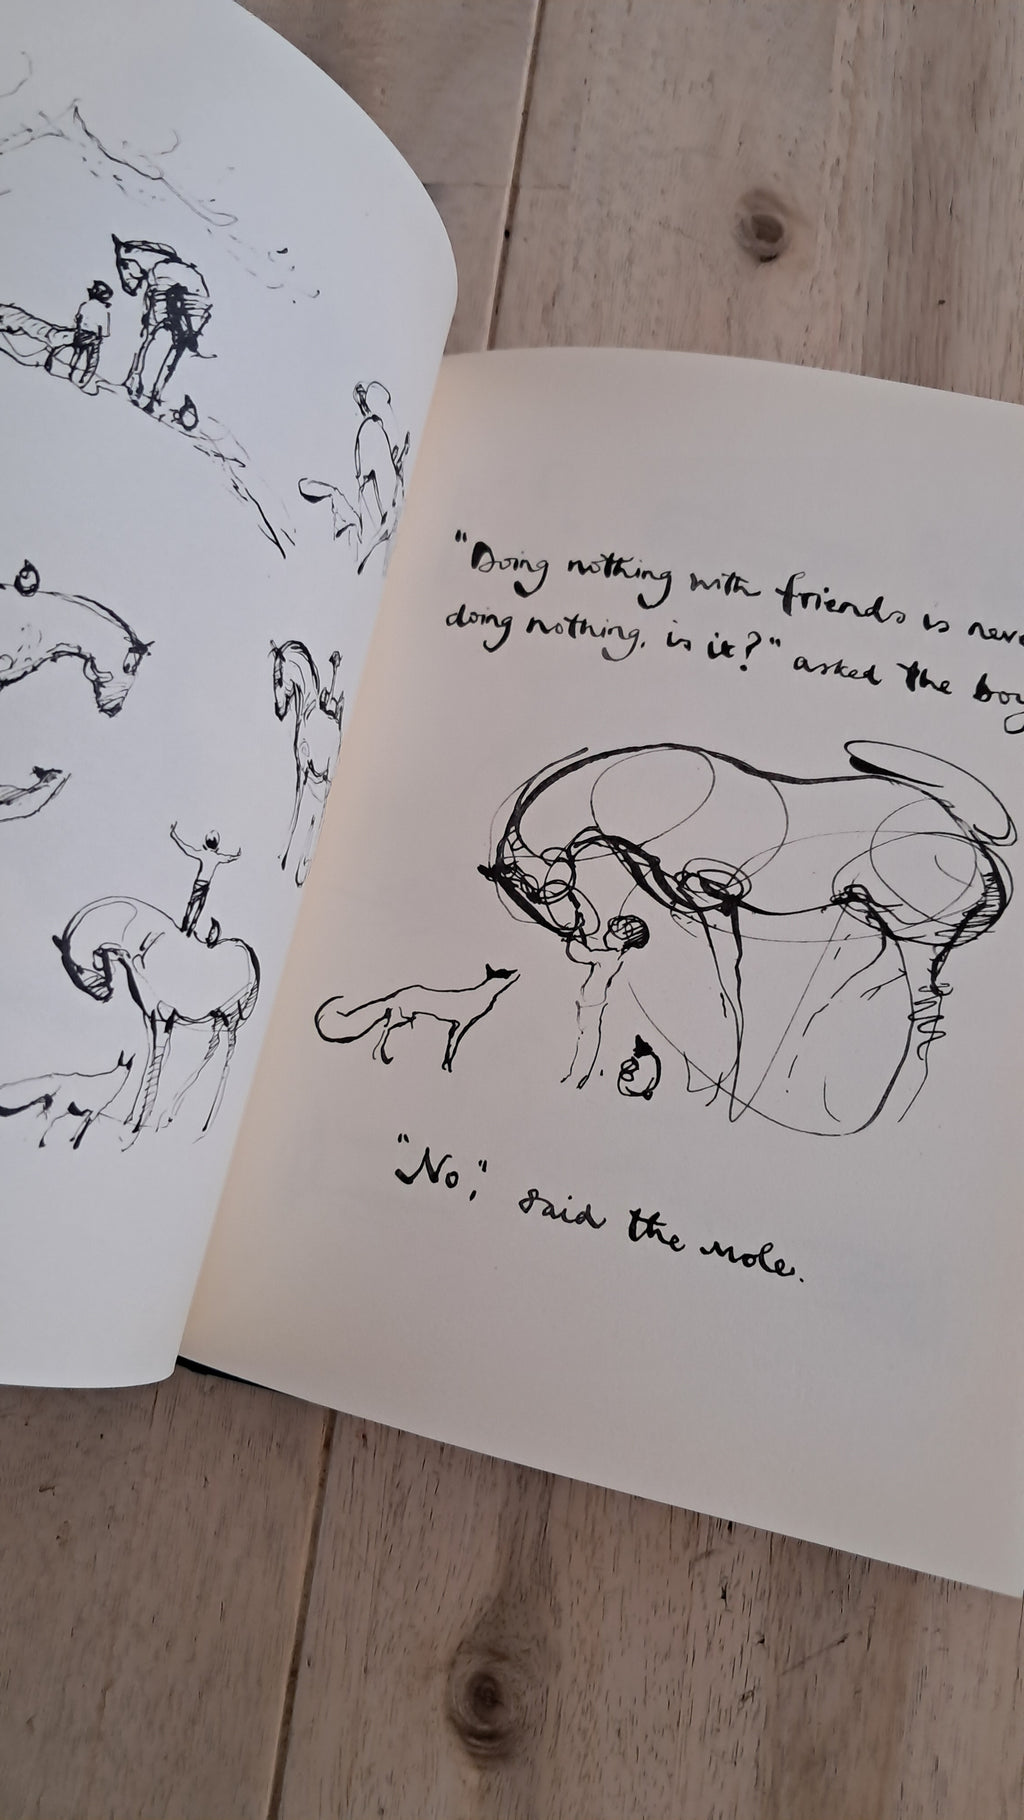 "Doing nothing with friends is neve
doing nothing, is it?" asked the boy
"No," said the mole.